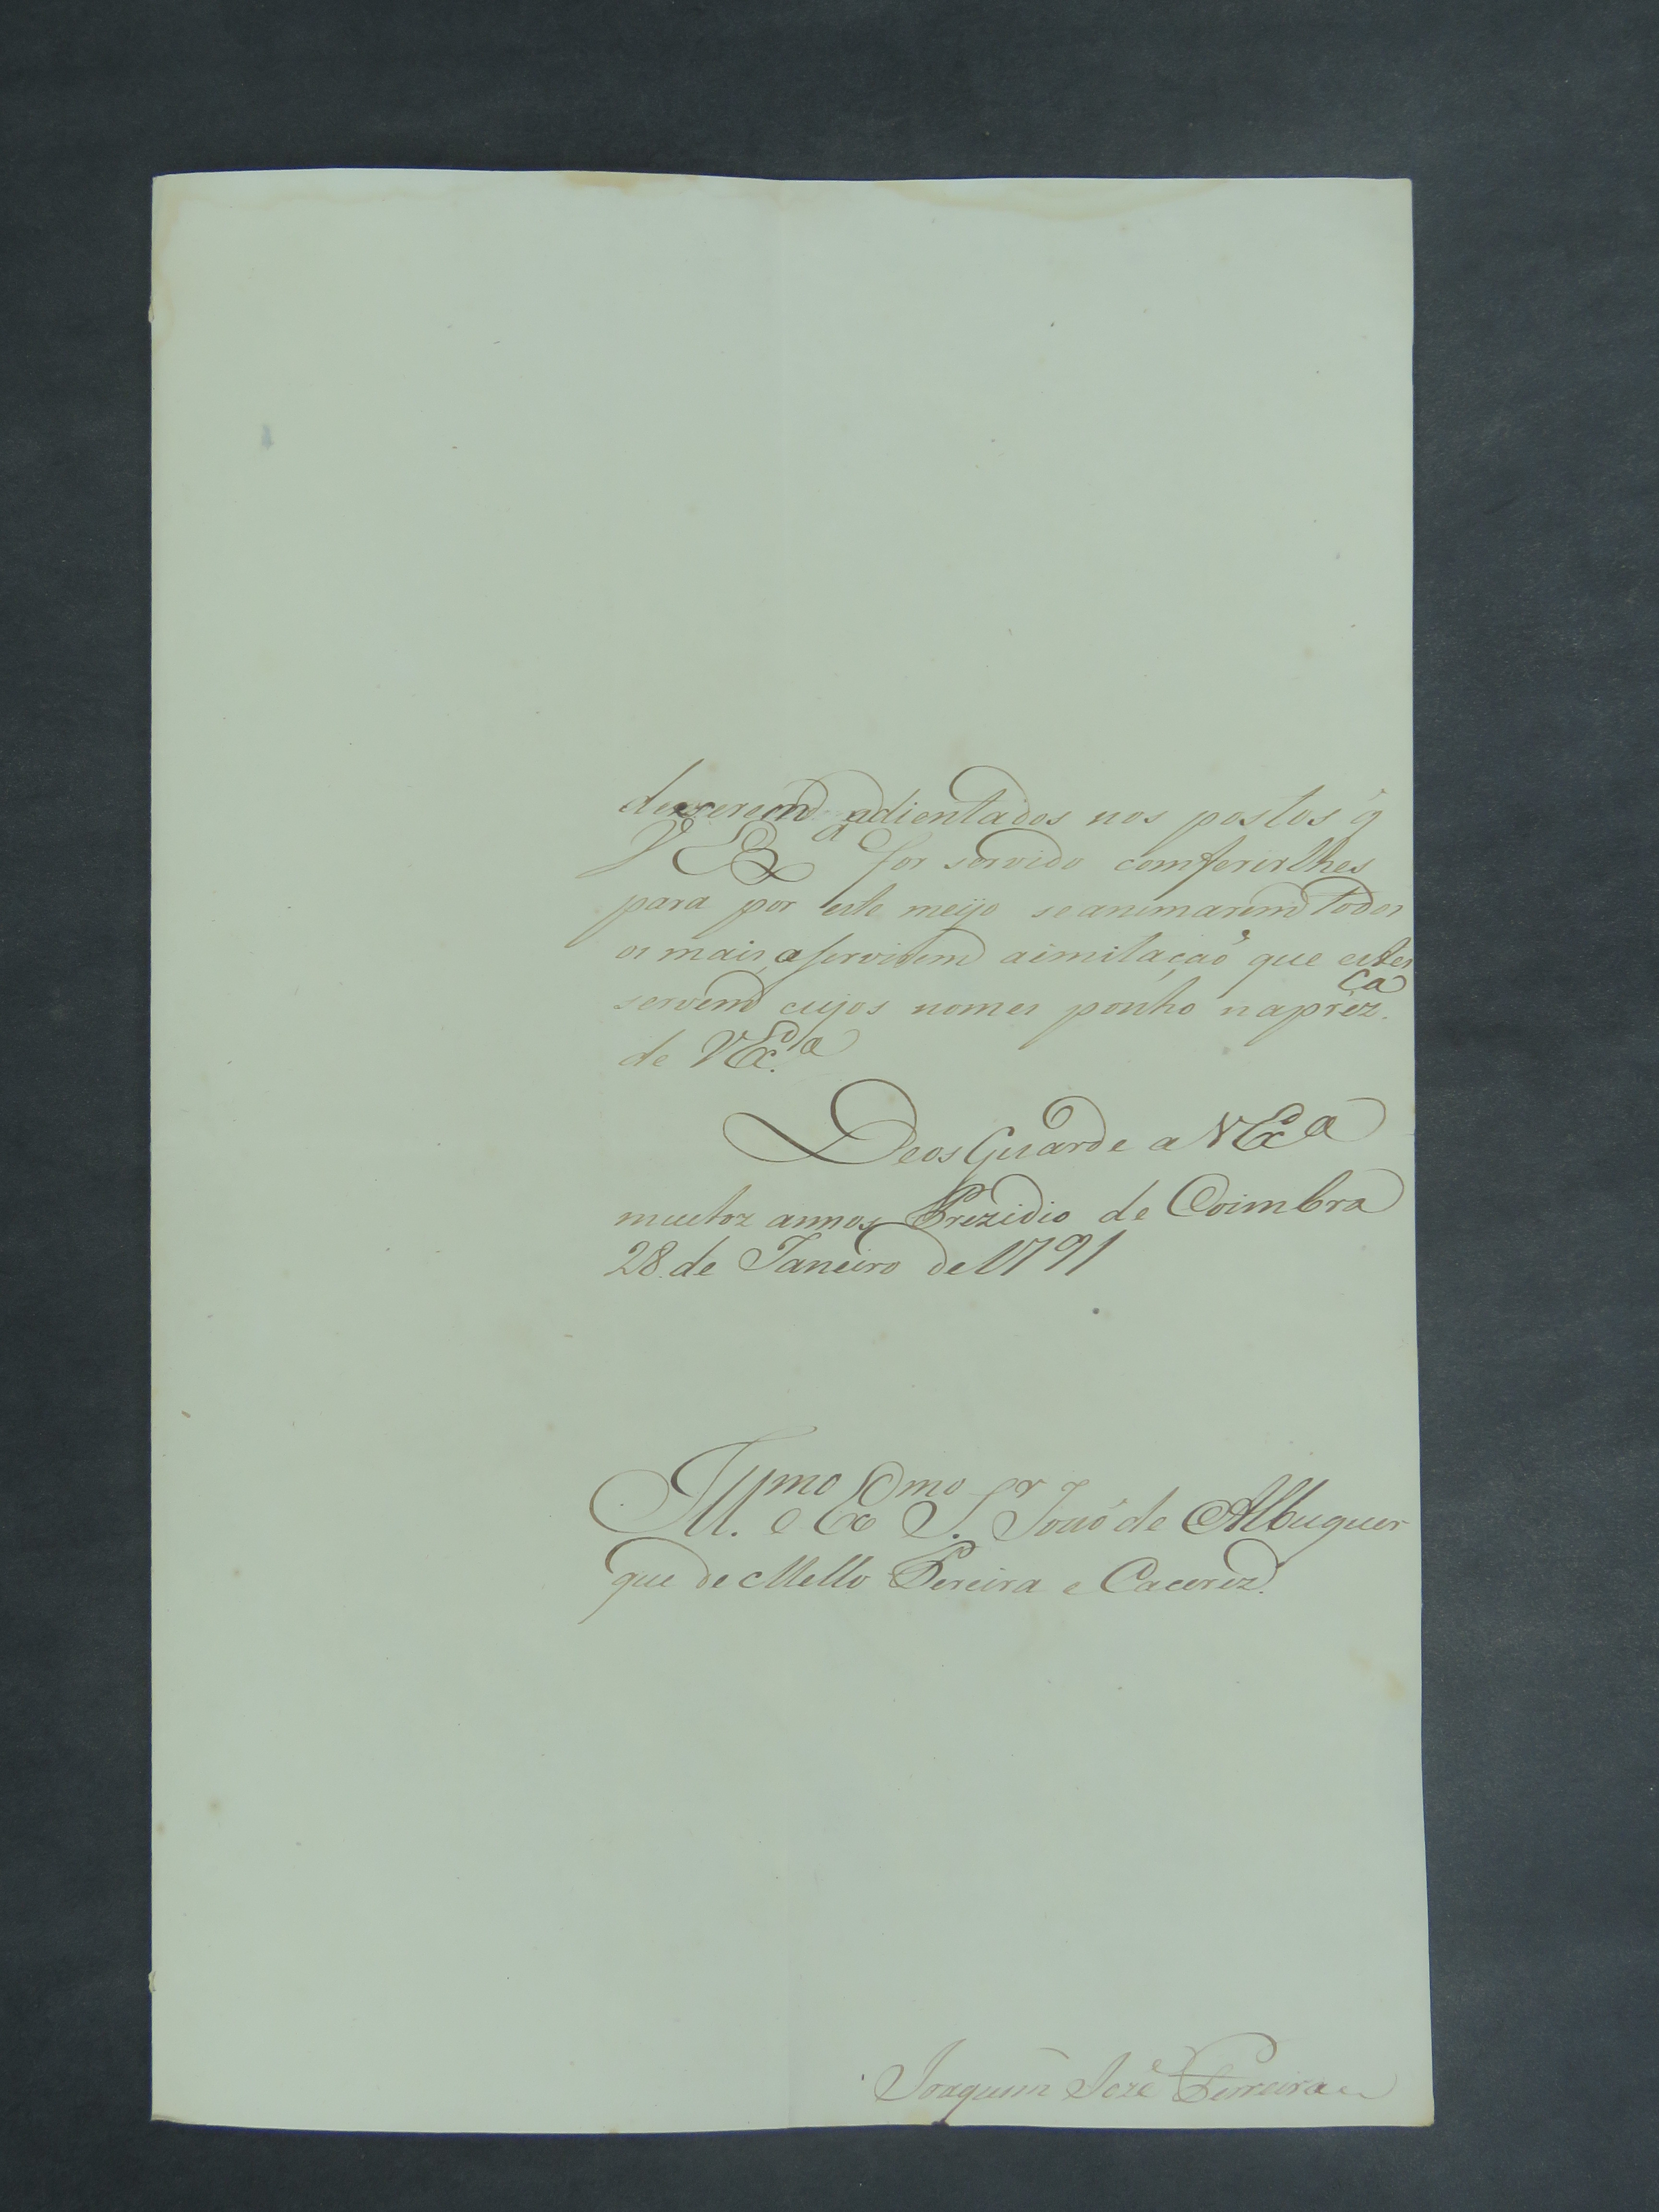 de serem adientados nos postos q̃
V Exª for servido comferirlhes
para por este meyo se animarem todos
os mais, a servirem aimitaçaõ que estes
servem cujos nomes ponho naprezça
de VExª
Deos Guarde a VExª
muitoz annos Prezidio de Coimbra
28. de Janeiro de 1791
Illmo. e Exmo Sr. Joaõ de Albuquer
que de Mello Pereira e Cacerez.
Joaquim Jozé Ferreira